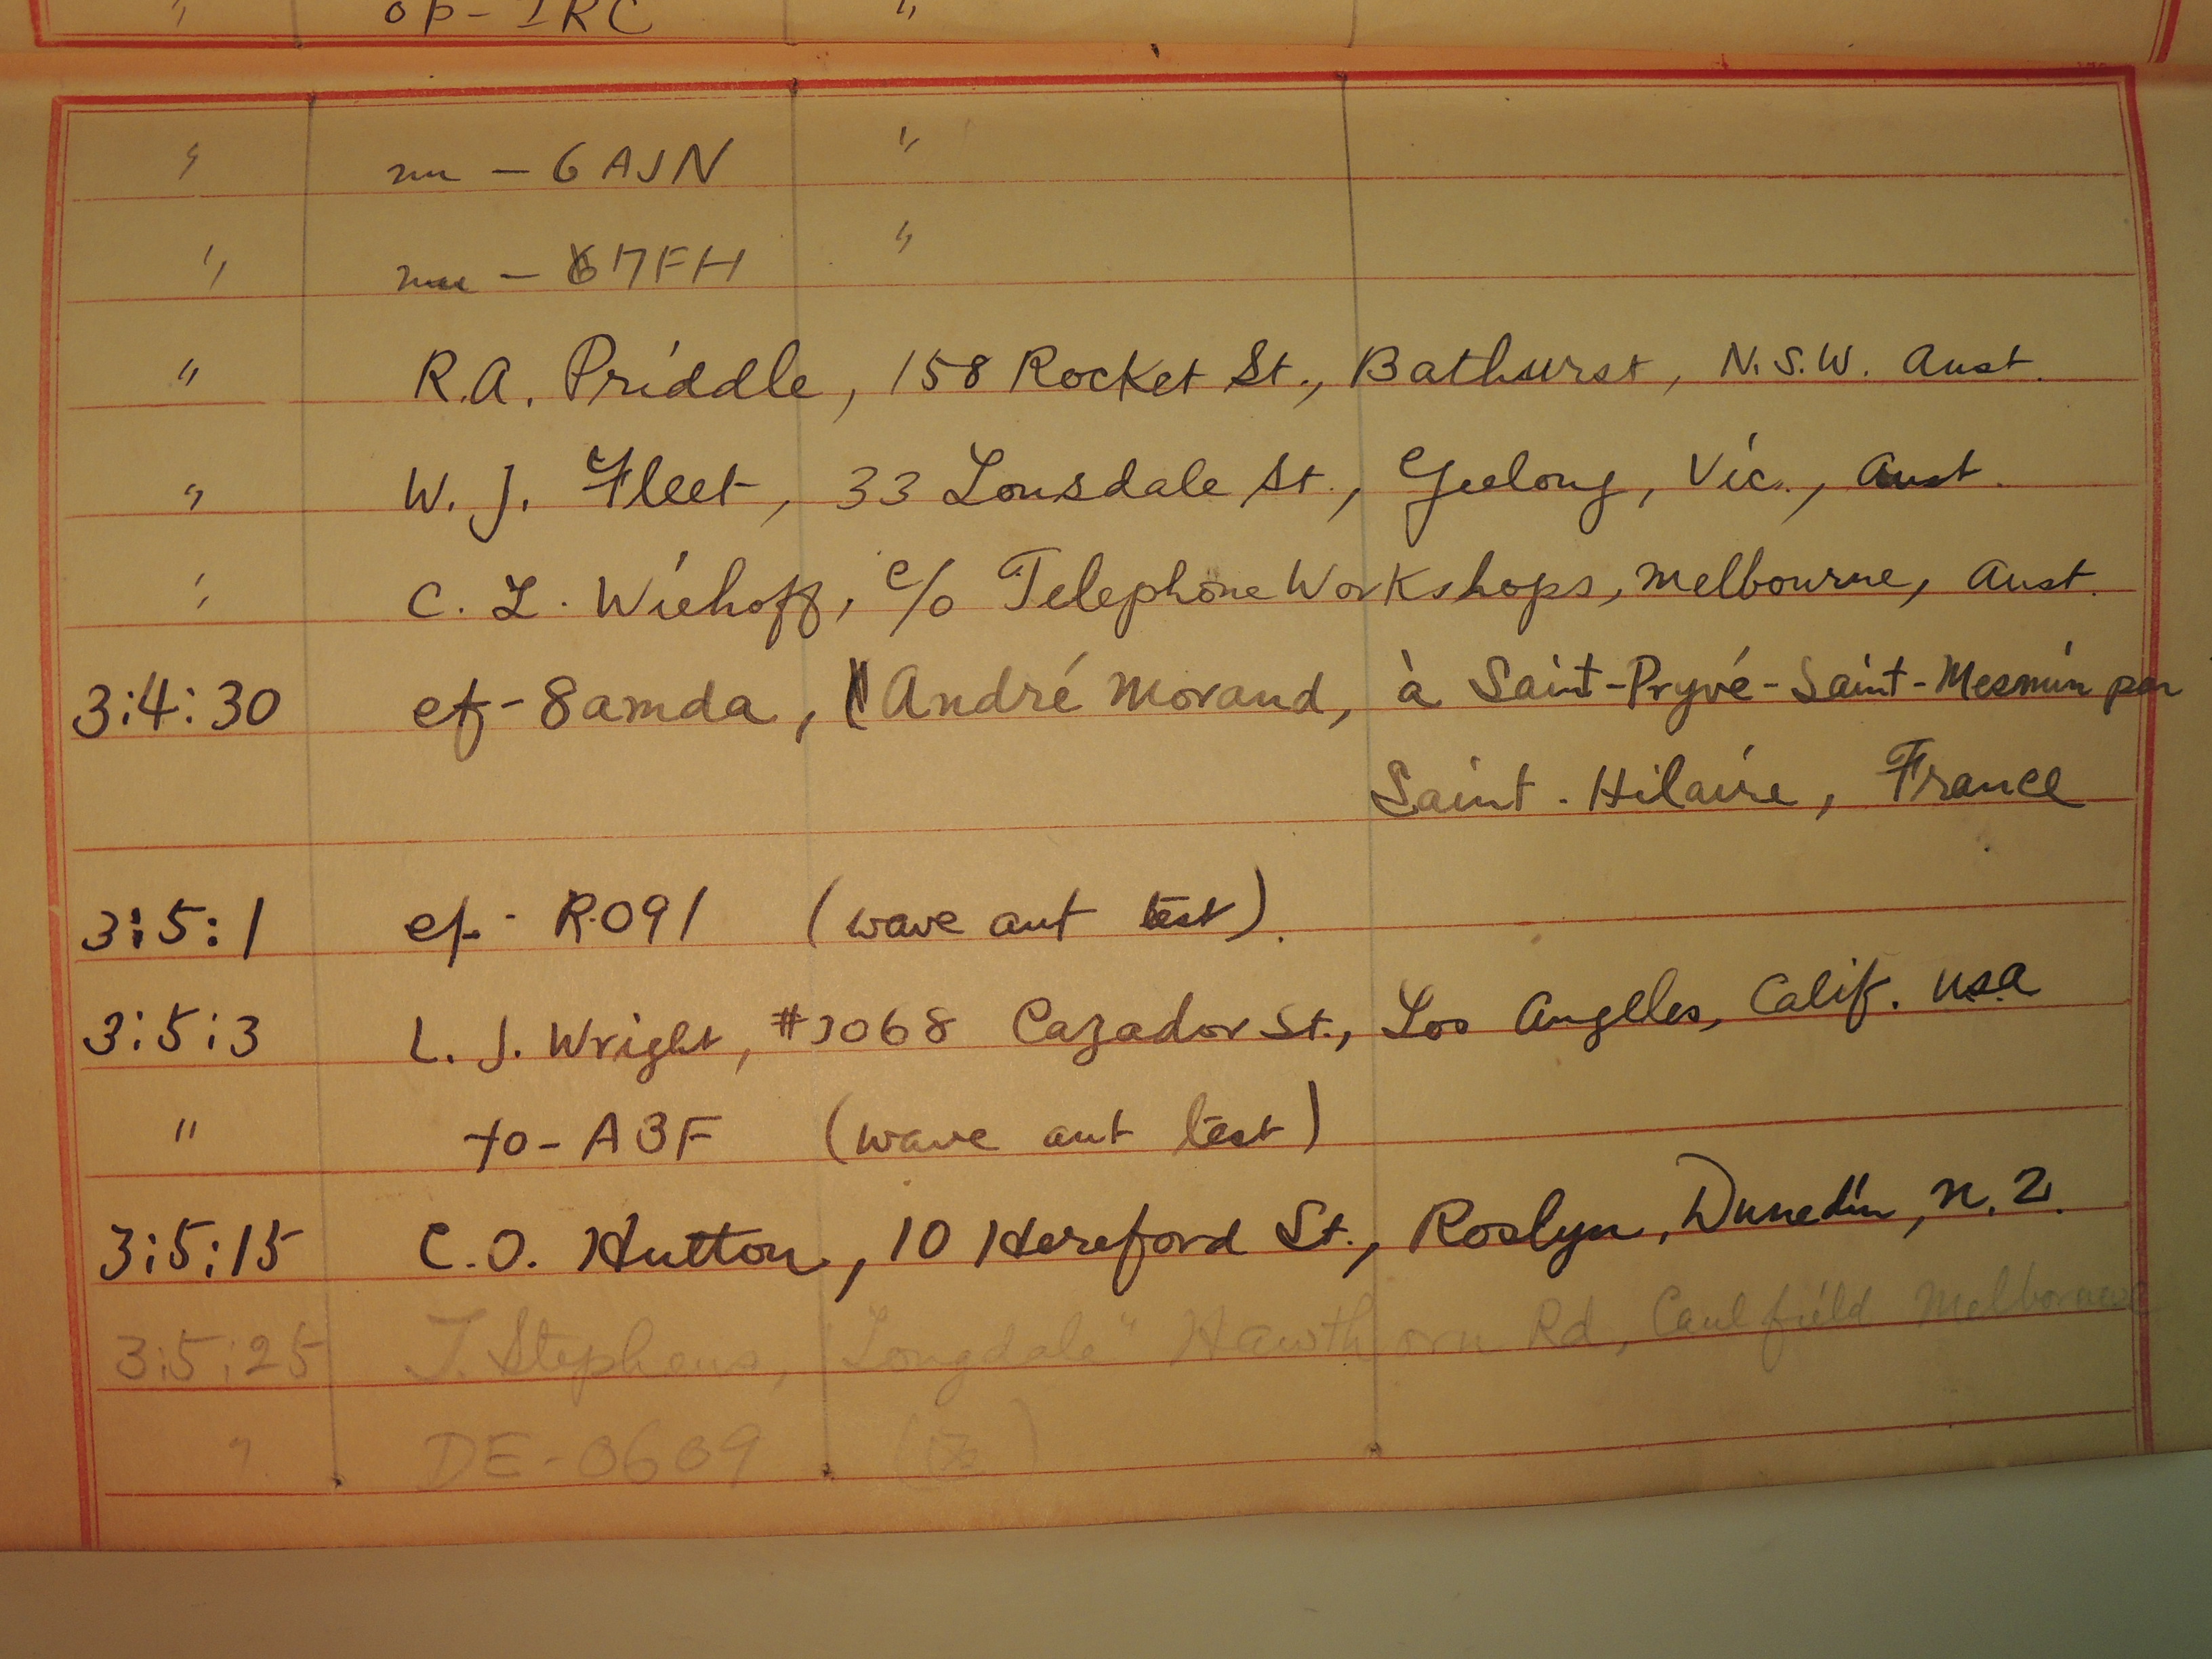 " op-1RC "
" nu - 6AJN "
" nu - 67FH "
" R.A. Priddle, 158 Rocket St., Bathurst, N.S.W. Aust.
" W. J. Fleet, 33 Lonsdale St., Geelong, Vic., Aust.
" C. L. Wiehoff, c/o Telephone Workshops, Melbourne, Aust.
3:4:30 ef-8amda, André Morand, à Saint-Pryvé-Saint-Mesmin par
Saint-Hilaire, France
3:5:1 ef- R091 (wave ant test).
3:5:3 L. J. Wright, #3068 Cazador St., Los Angeles, Calif. USA
" to-A3F (wave ant test)
3:5:15 C.O. Hutton, 10 Hereford St., Roslyn, Dunedin, N.Z.
3:5:25 J. Stephens, "Longdale" Hawthorn Rd, Caulfield Melborne
" DE-0609